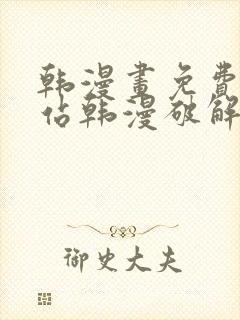 韩漫画免费
佔韩漫破解
御史大夫